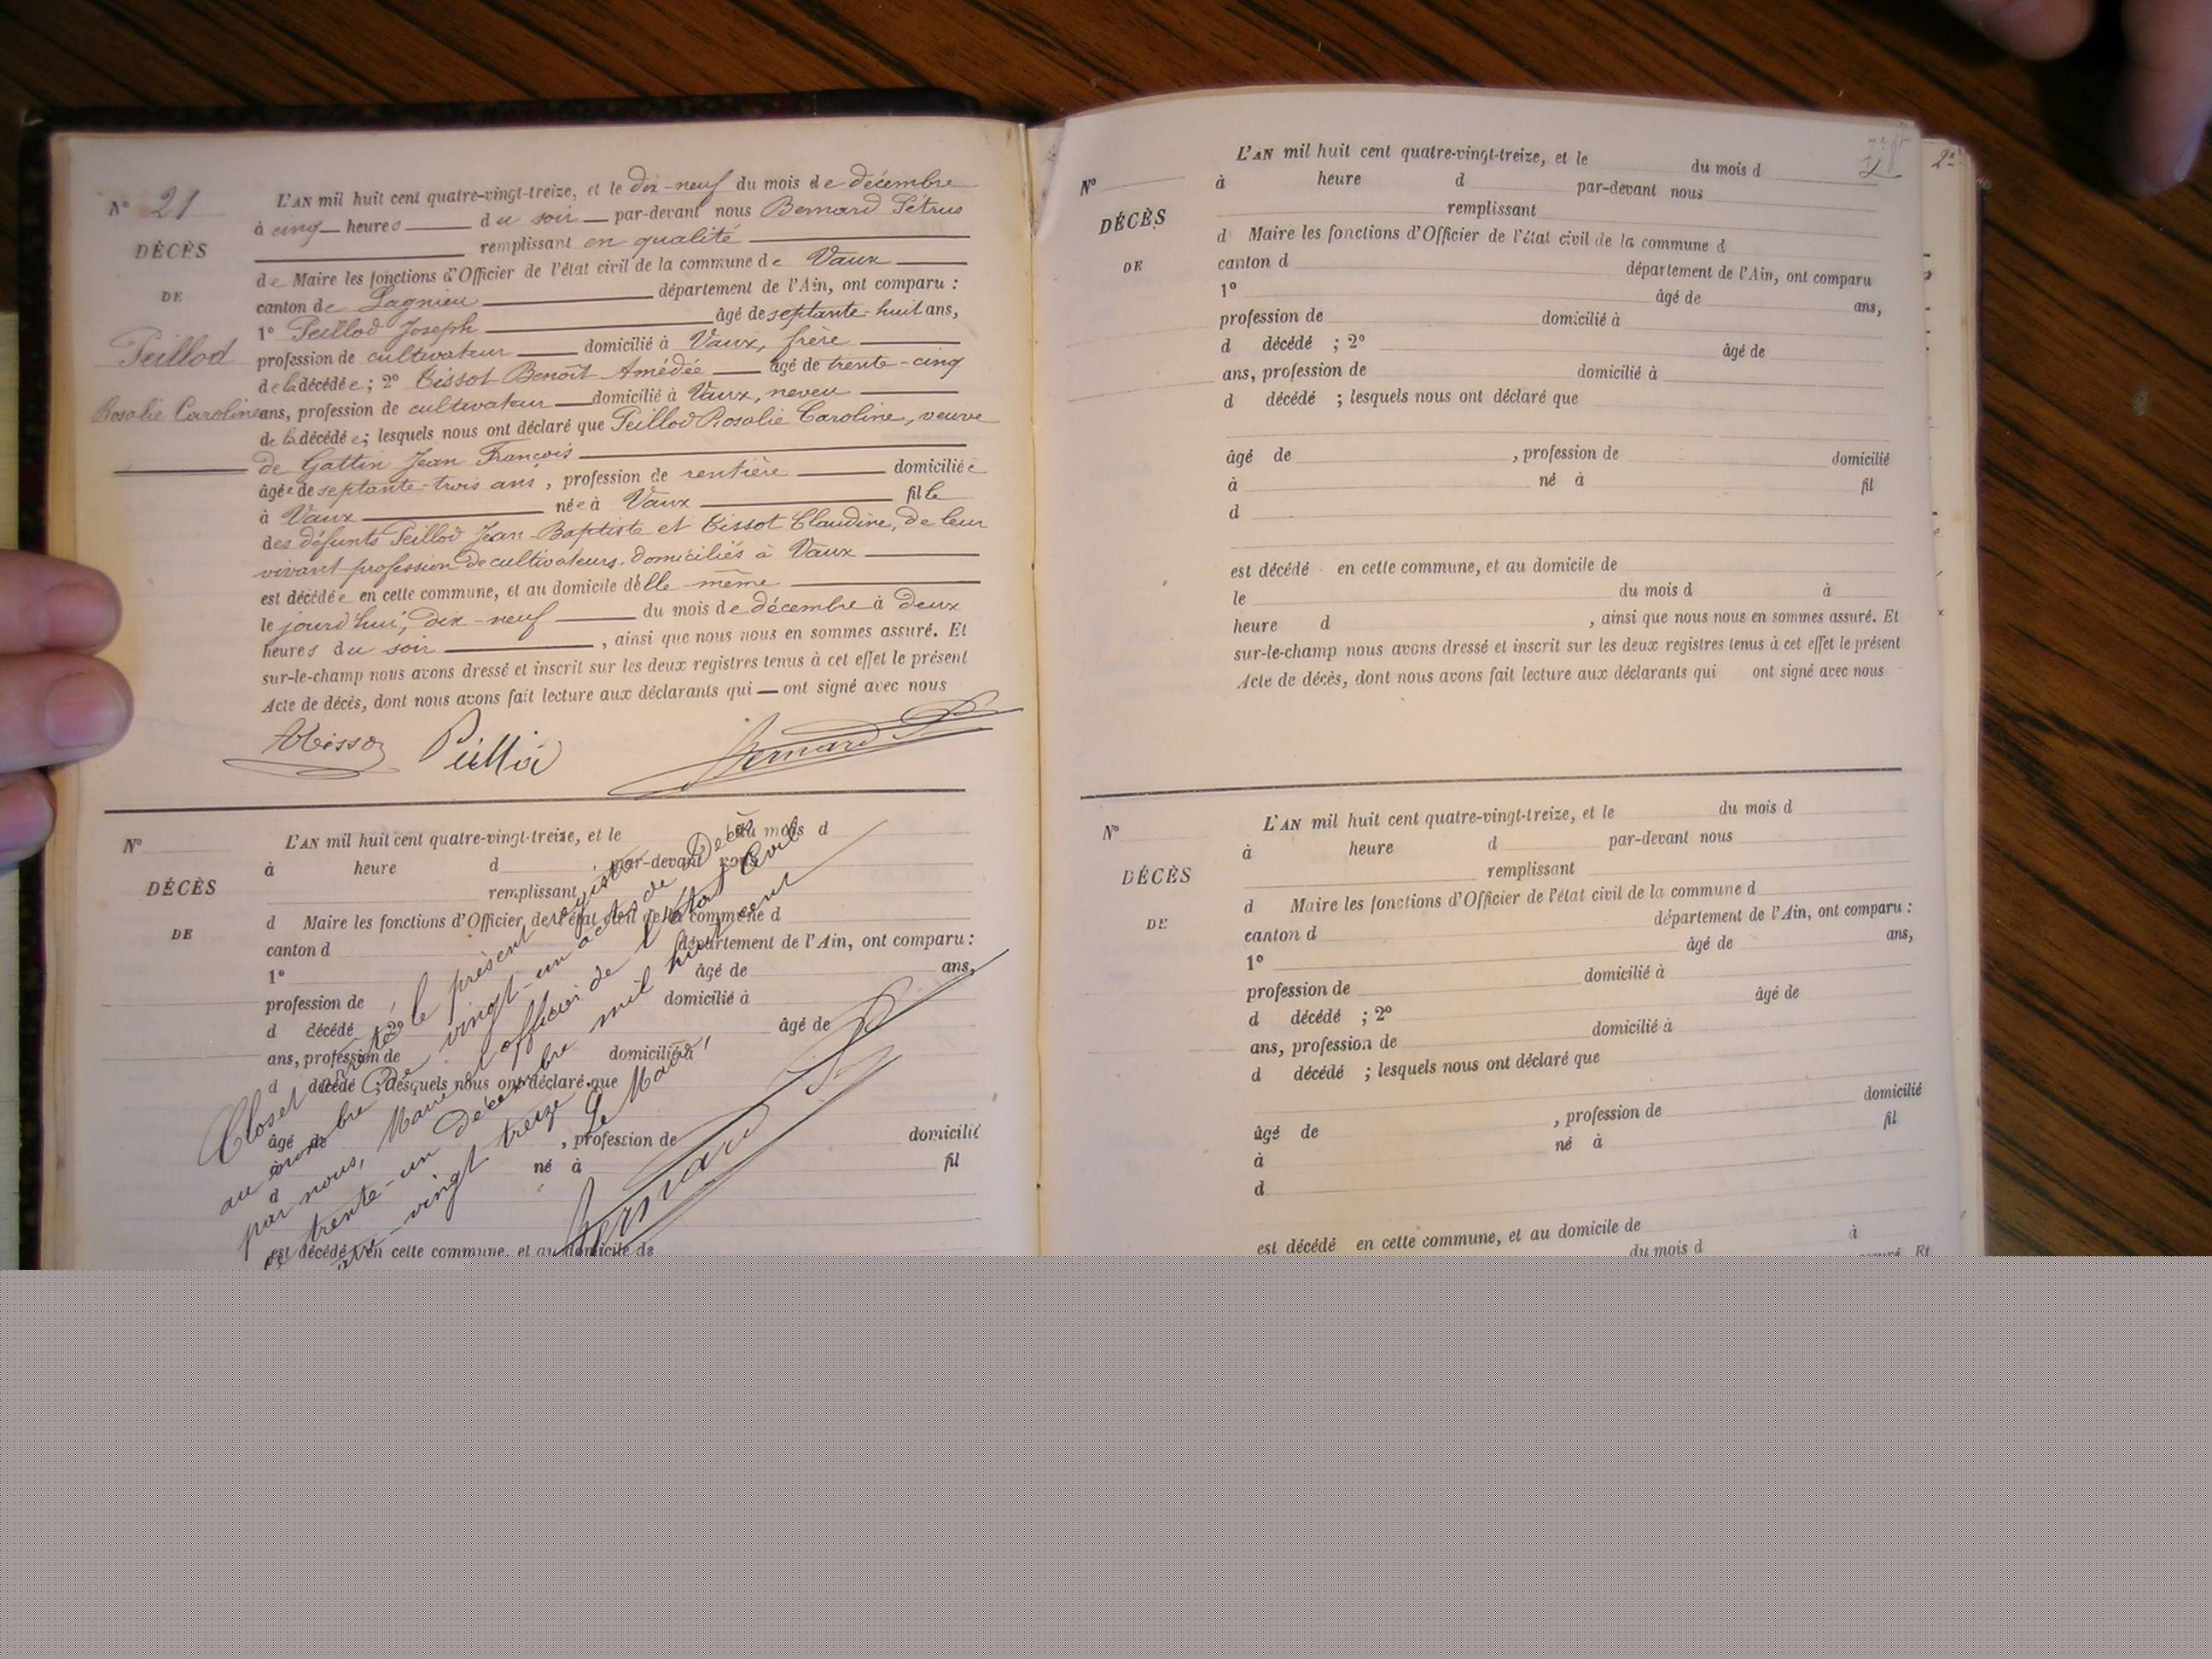 N° 21
DÉCÈS
DE
Peillod
Rosalie Caroline
L'AN mil huit cent quatre-vingt-treize, et le dix-neuf du mois de décembre
à cinq heures du soir par-devant nous Bernard Pétrus
remplissant en qualité
de Maire les fonctions d'Officier de l'état civil de la commune de Vaux
canton de Lagnieu département de l'Ain, ont comparu :
1° Peillod Joseph âgé de septante-huit ans,
profession de cultivateur domicilié à Vaux, frère
de la décédée ; 2° Tissot Benoît Amédée âgé de trente-cinq
ans, profession de cultivateur domicilié à Vaux, neveu
de la décédée ; lesquels nous ont déclaré que Peillod Rosalie Caroline, veuve
de Gattin Jean François
âgée de septante-trois ans, profession de rentière domiciliée
à Vaux née à Vaux fille
des défunts Peillod Jean-Baptiste et Tissot Claudine, de leur
vivant profession de cultivateurs, domiciliés à Vaux
est décédée en cette commune, et au domicile d'elle-même
le jourd'hui, dix-neuf du mois de décembre à deux
heures du soir, ainsi que nous nous en sommes assuré. Et
sur-le-champ nous avons dressé et inscrit sur les deux registres tenus à cet effet le présent
Acte de décès, dont nous avons fait lecture aux déclarants qui — ont signé avec nous
Peillod Bernard P
N°
DÉCÈS
DE
L'AN mil huit cent quatre-vingt-treize, et le du mois d
à heure d par-devant nous
remplissant
d Maire les fonctions d'Officier de l'état civil de la commune d
canton d département de l'Ain, ont comparu :
1° âgé de ans,
profession de domicilié à
d décédé ; 2° âgé de
ans, profession de domicilié à
d décédé ; lesquels nous ont déclaré que
âgé de , profession de domicilié
à né à fil
d
est décédé en cette commune, et au domicile de
Closet arrêté le présent registre
au nombre de vingt-un actes de Décès
par nous, Maire et officier de l'état Civil
le trente-un décembre mil huit cent
quatre-vingt treize.
Le Maire,
Bernard P
N°
DÉCÈS
DE
L'AN mil huit cent quatre-vingt-treize, et le du mois d
à heure d par-devant nous
remplissant
d Maire les fonctions d'Officier de l'état civil de la commune d
canton d département de l'Ain, ont comparu
1° âgé de ans,
profession de domicilié à
d décédé ; 2° âgé de
ans, profession de domicilié à
d décédé ; lesquels nous ont déclaré que
âgé de , profession de domicilié
à né à fil
d
est décédé en cette commune, et au domicile de
le du mois d à
heure d , ainsi que nous nous en sommes assuré. Et
sur-le-champ nous avons dressé et inscrit sur les deux registres tenus à cet effet le présent
Acte de décès, dont nous avons fait lecture aux déclarants qui ont signé avec nous
N°
DÉCÈS
DE
L'AN mil huit cent quatre-vingt-treize, et le du mois d
à heure d par-devant nous
remplissant
d Maire les fonctions d'Officier de l'état civil de la commune d
canton d département de l'Ain, ont comparu :
1° âgé de ans,
profession de domicilié à
d décédé ; 2° âgé de
ans, profession de domicilié à
d décédé ; lesquels nous ont déclaré que
âgé de , profession de domicilié
à né à fil
d
est décédé en cette commune, et au domicile de
du mois d à